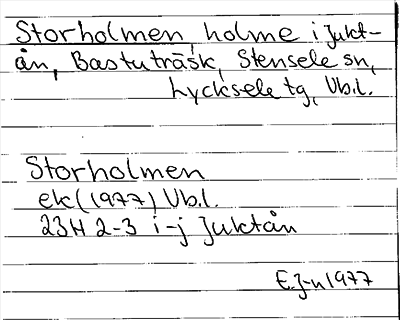 Storholmen, holme i Jukt-
ån, Bastuträsk, Stensele sn,
Lycksele tg, Vb.l.
Storholmen
ek (1977) Vb.l.
23H 2-3 i-j Juktån
E.J-n 1977